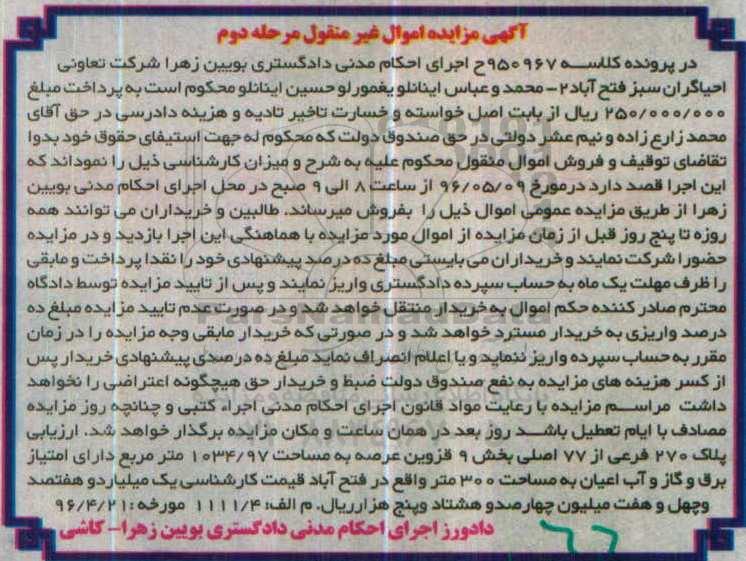 آگهی مزایده اموال غیر منقول مرحله دوم
در پرونده کلاسه ۹۵۰۹۶۷ح اجرای احکام مدنی دادگستری بویین زهرا شرکت تعاونی
احیاگران سبز فتح آباد۲- محمد و عباس اینانلو یغمورلو حسین اینانلو محکوم است به پرداخت مبلغ
۲۵۰/۰۰۰/۰۰۰ ریال از بابت اصل خواسته و خسارت تاخیر تادیه و هزینه دادرسی در حق آقای
محمد زارع زاده و نیم عشر دولتی در حق صندوق دولت که محکوم له جهت استیفای حقوق خود بدوا
تقاضای توقیف و فروش اموال منقول محکوم علیه به شرح و میزان کارشناسی ذیل را نمودهاند که
این اجرا قصد دارد درمورخ ۹۶/۰۵/۰۹ از ساعت ۸ الی ۹ صبح در محل اجرای احکام مدنی بویین
زهرا از طریق مزایده عمومی اموال ذیل را بفروش میرساند. طالبین و خریداران می توانند همه
روزه تا پنج روز قبل از زمان مزایده از اموال مورد مزایده با هماهنگی این اجرا بازدید و در مزایده
حضورا شرکت نمایند و خریداران می بایستی مبلغ ده درصد پیشنهادی خود را نقدا پرداخت و مابقی
را ظرف مهلت یک ماه به حساب سپرده دادگستری واریز نمایند و پس از تایید مزایده توسط دادگاه
محترم صادر کننده حکم اموال به خریدار منتقل خواهد شد و در صورت عدم تایید مزایده مبلغ ده
درصد واریزی به خریدار مسترد خواهد شد و در صورتی که خریدار مابقی وجه مزایده را در زمان
مقرر به حساب سپرده واریز ننماید و یا اعلام انصراف نماید مبلغ ده درصدی پیشنهادی خریدار پس
از کسر هزینه های مزایده به نفع صندوق دولت ضبط و خریدار حق هیچگونه اعتراضی را نخواهد
داشت مراسم مزایده با رعایت مواد قانون اجرای احکام مدنی اجراء کتبی و چنانچه روز مزایده
مصادف با ایام تعطیل باشد روز بعد در همان ساعت و مکان مزایده برگذار خواهد شد. ارزیابی
پلاک ۲۷۰ فرعی از ۷۷ اصلی بخش ۹ قزوین عرصه به مساحت ۱۰۳۴/۹۷ متر مربع دارای امتیاز
برق و گاز و آب اعیان به مساحت ۳۰۰ متر واقع در فتح آباد قیمت کارشناسی یک میلیاردو هفتصد
وچهل و هفت میلیون چهارصدو هشتاد وپنج هزارریال. م الف: ۱۱۱۱/۴ مورخه: ۹۶/۴/۲۱
دادورز اجرای احکام مدنی دادگستری بویین زهرا- کاشی